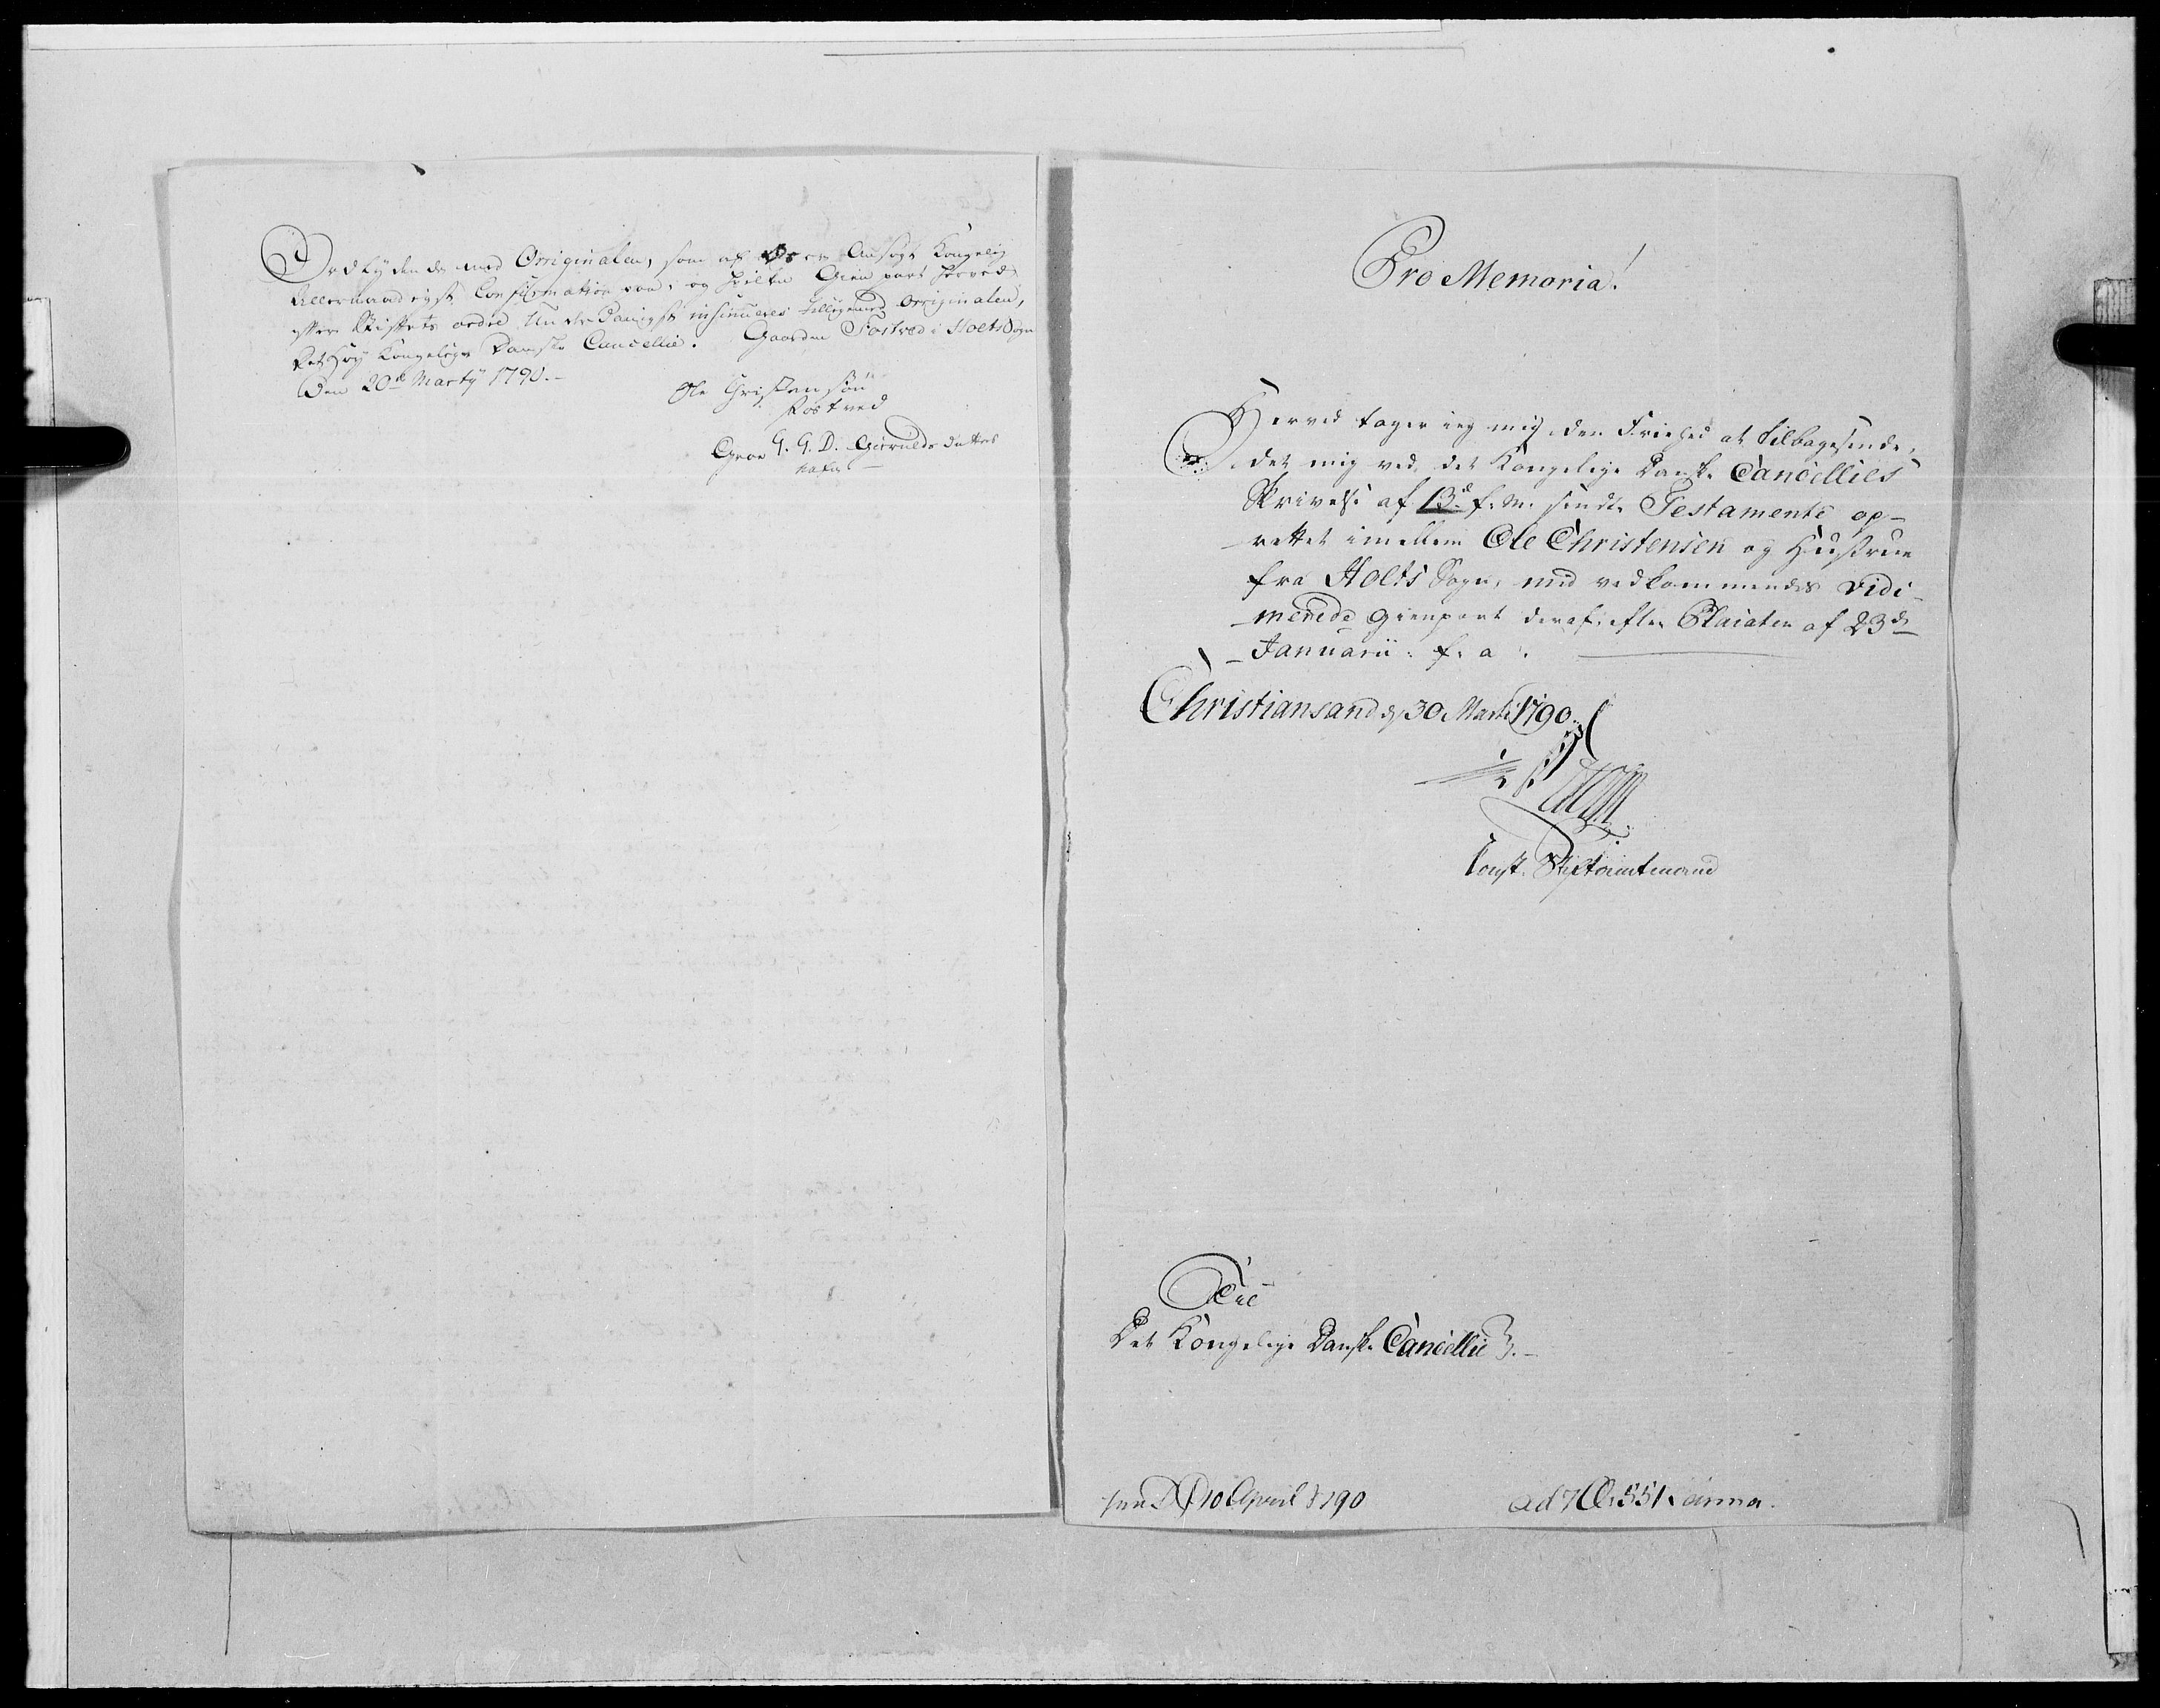 Ordlydende med Originalen, som af Os er Ansøgt Kongelig
Allernaadigst Confirmation paa, og hvilken Gienpart herved
efter Stiftets ordre Underdanigst insinueres tilligemed Originalen,
det Høy Kongelige Danske Cancellie. Gaarden Fostved i Holts Sogn
Den 20de Marty 1790.-
Ole Christensøn
Fostved
Groe G. G. D. Gierulds datter
Pro Memoria!
Herved tager ieg mig den Friehed at tilbagesende,
det mig ved det Kongelige Danske Cancellies
Skrivelse af 13de f. M. sendte Testamente op-
rettet imellem Ole Christensen og Hustrue
fra Holts Sogn, med vedkommendes vidi-
merede Gienpart deraf, efter Placaten af 23de
Januarii f. a.
Christiansand d. 30 Martii 1790.
Const. Stiftamtmand
Til
Det Kongelige Danske Cancellie.-
10 April 1790
ad 551